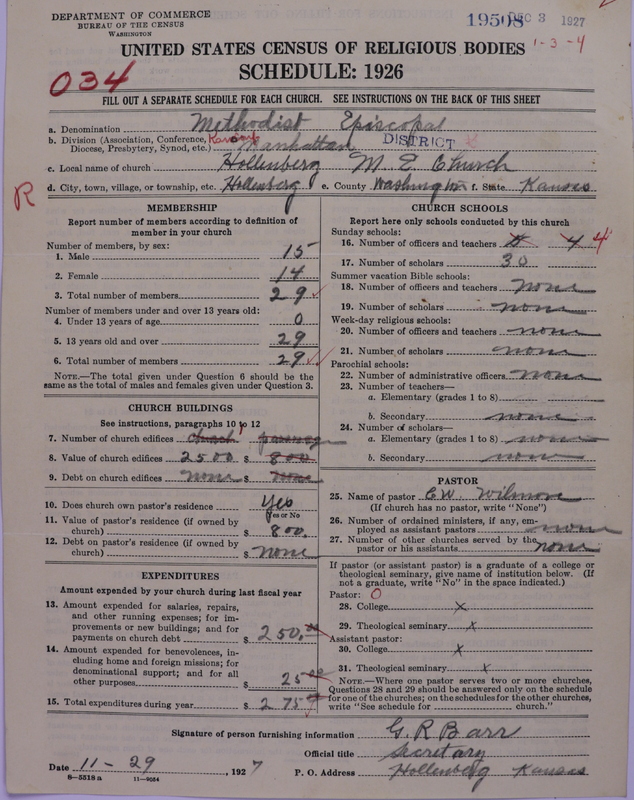 DEPARTMENT OF COMMERCE
BUREAU OF THE CENSUS
WASHINGTON
19508 DEC 3 1927
UNITED STATES CENSUS OF RELIGIOUS BODIES
1-3-4
SCHEDULE: 1926
034
FILL OUT A SEPARATE SCHEDULE FOR EACH CHURCH. SEE INSTRUCTIONS ON THE BACK OF THIS SHEET
a. Denomination Methodist Episcopal
b. Division (Association, Conference, Kansas
Diocese, Presbytery, Synod, etc.) Manhattan DISTRICT
c. Local name of church Hollenberg M E Church
d. City, town, village, or township, etc. Hollenberg e. County Washington f. State Kansas
R
MEMBERSHIP
Report number of members according to definition of
member in your church
Number of members, by sex:
1. Male 15
2. Female 14
3. Total number of members 29
Number of members under and over 13 years old:
4. Under 13 years of age 0
5. 13 years old and over 29
6. Total number of members 29
NOTE.—The total given under Question 6 should be the
same as the total of males and females given under Question 3.
CHURCH BUILDINGS
See instructions, paragraphs 10 to 12
7. Number of church edifices church 1 parsonage
8. Value of church edifices 2500 $ 800
9. Debt on church edifices none $ none
10. Does church own pastor's residence? Yes
(Yes or No)
11. Value of pastor's residence (if owned by
church) $ 800.
12. Debt on pastor's residence (if owned by
church) $ none
EXPENDITURES
Amount expended by your church during last fiscal year
13. Amount expended for salaries, repairs,
and other running expenses; for im-
provements or new buildings; and for
payments on church debt $ 250.00
14. Amount expended for benevolences, in-
cluding home and foreign missions; for
denominational support; and for all
other purposes $ 25 00
15. Total expenditures during year $ 275
CHURCH SCHOOLS
Report here only schools conducted by this church
Sunday schools:
16. Number of officers and teachers 4 4
17. Number of scholars 30
Summer vacation Bible schools:
18. Number of officers and teachers none
19. Number of scholars none
Week-day religious schools:
20. Number of officers and teachers none
21. Number of scholars none
Parochial schools:
22. Number of administrative officers none
23. Number of teachers—
a. Elementary (grades 1 to 8)
b. Secondary none
24. Number of scholars—
a. Elementary (grades 1 to 8) none
b. Secondary none
PASTOR
25. Name of pastor C. W. Wilmore
(If church has no pastor, write "None")
26. Number of ordained ministers, if any, em-
ployed as assistant pastors none
27. Number of other churches served by the
pastor or his assistants none
If pastor (or assistant pastor) is a graduate of a college or
theological seminary, give name of institution below. (If
not a graduate, write "No" in the space indicated.)
Pastor: O
28. College x
29. Theological seminary x
Assistant pastor:
30. College x
31. Theological seminary x
NOTE.—Where one pastor serves two or more churches,
Questions 28 and 29 should be answered only on the schedule
for one of the churches; on the schedules for the other churches,
write "See schedule for church."
Signature of person furnishing information G. R Barr
Official title Secretary
Date 11-29, 1927 P. O. Address Hollenberg Kansas
8—5518 a 11—9034